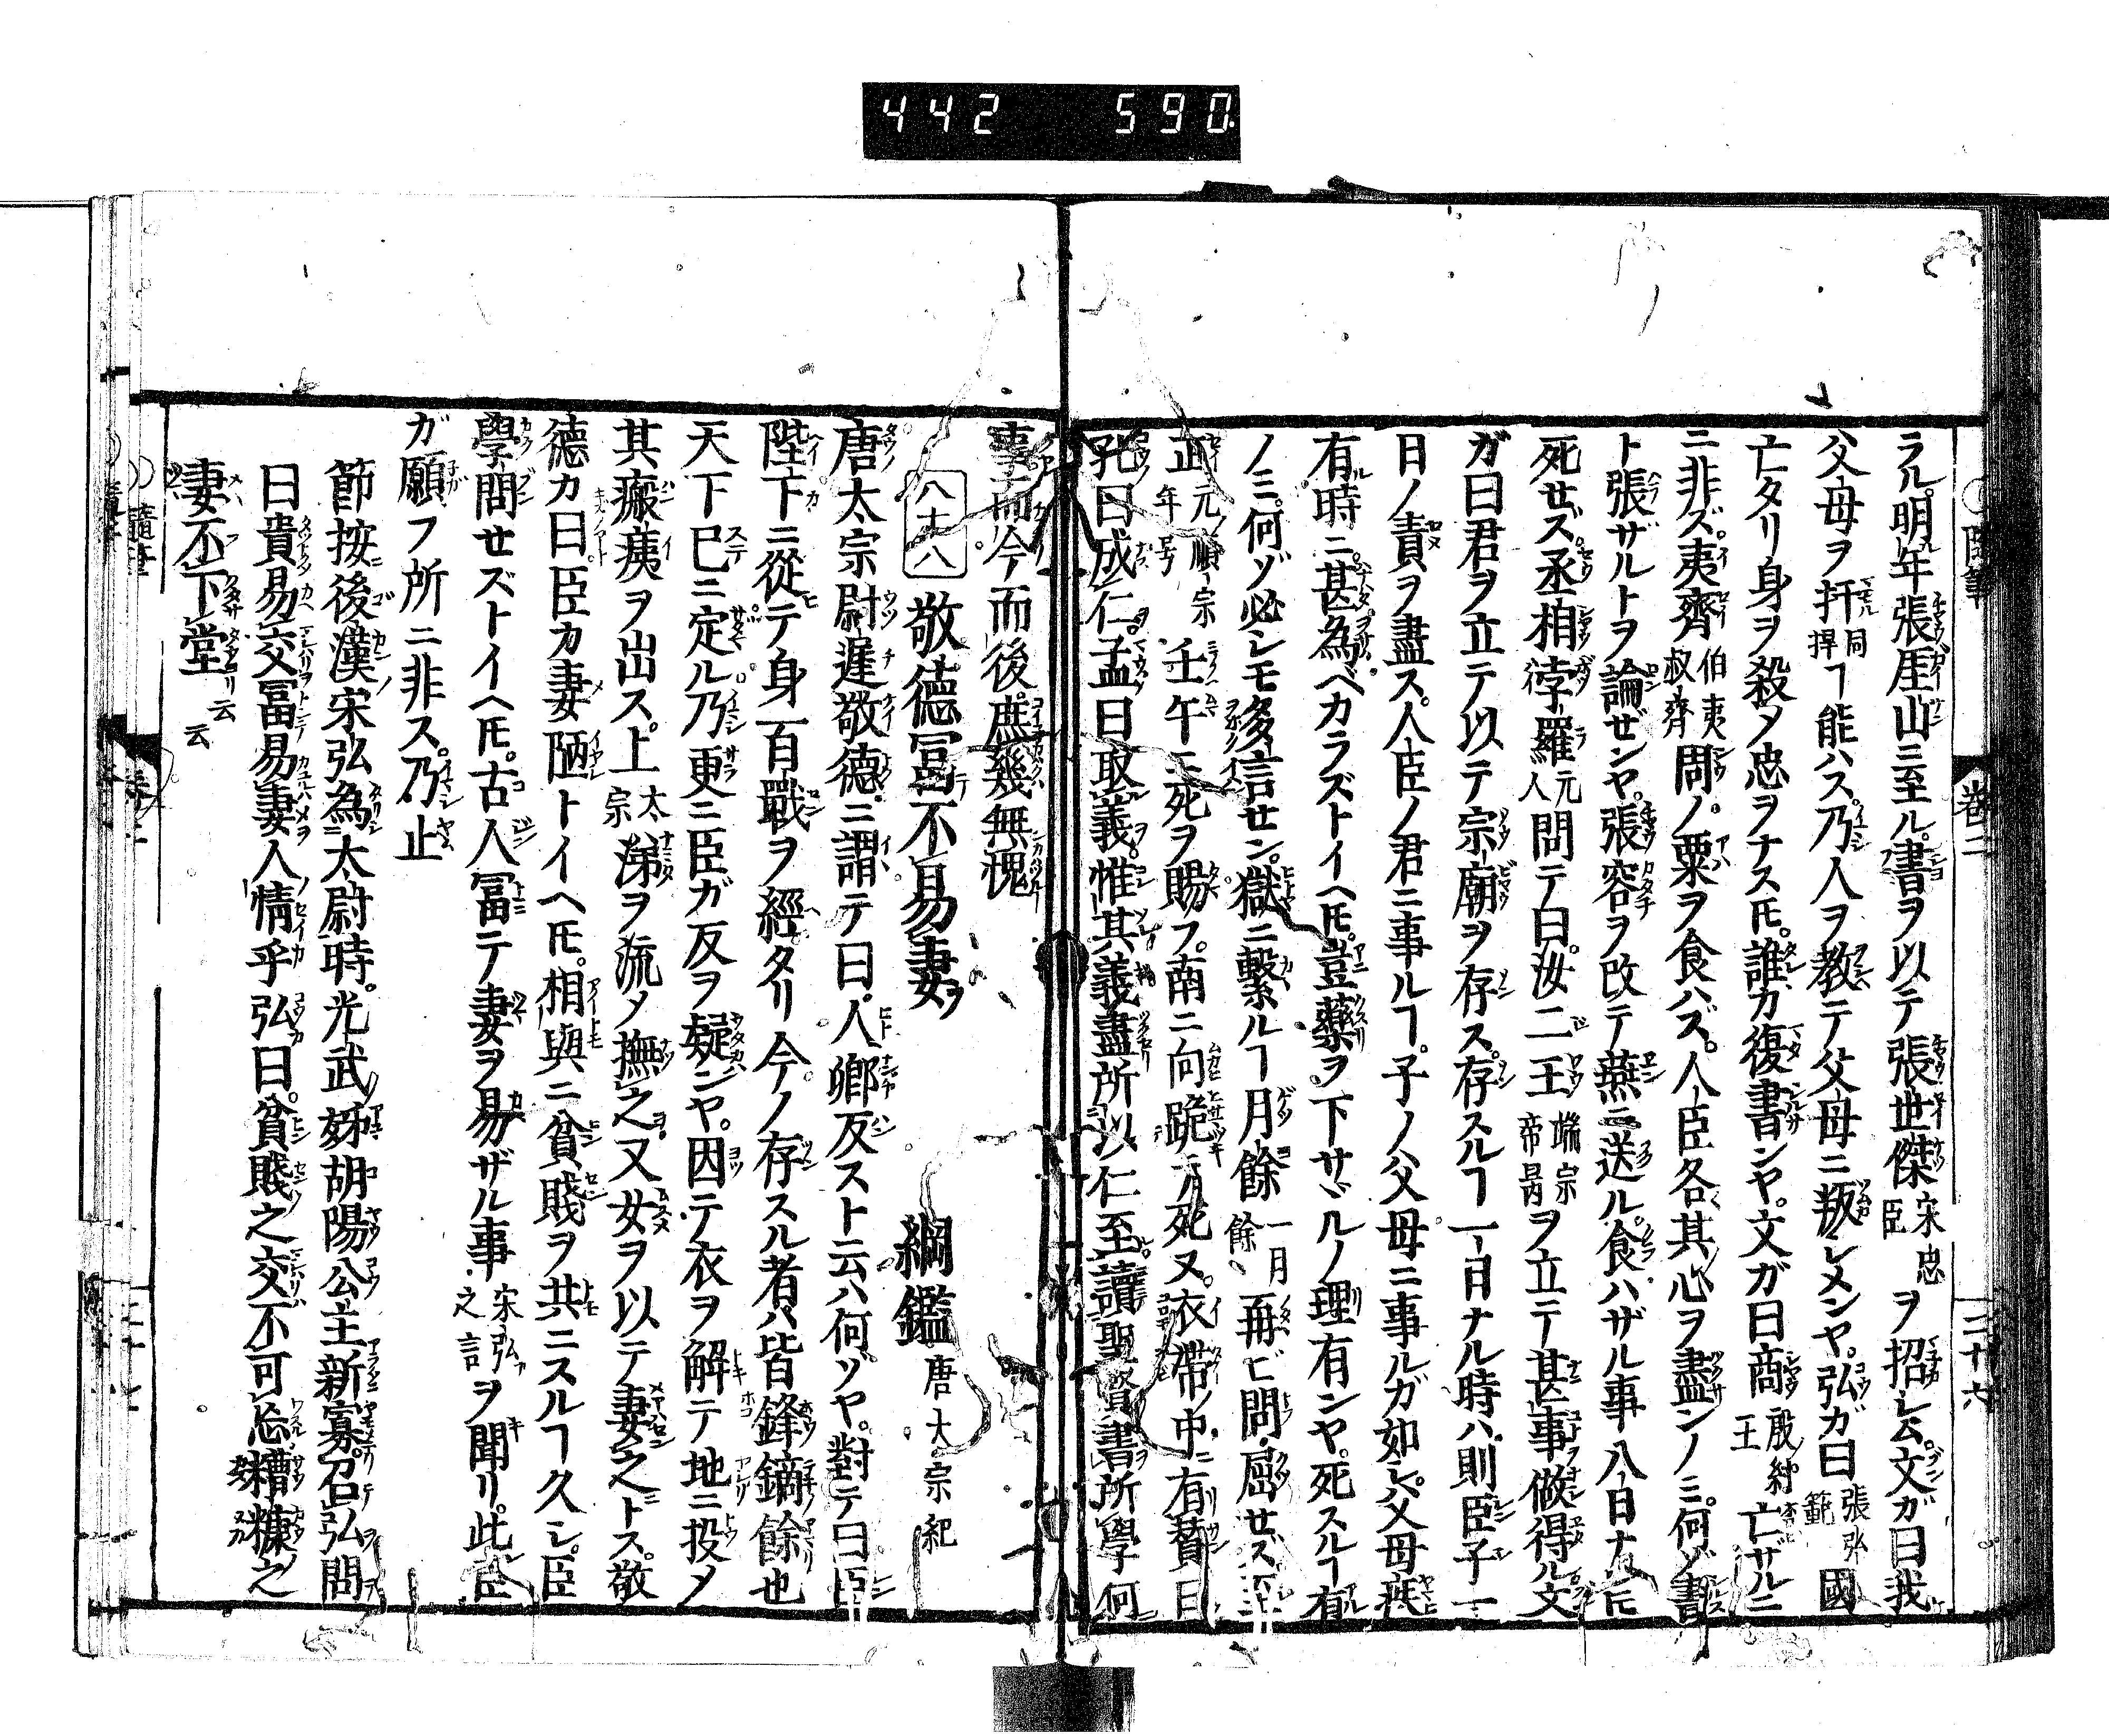 442 590
ラル明年張厓山ニ至ル書ヲ以テ張世傑宋忠臣ヲ招シム文ガ曰我
父母ヲ扞同捍ヿ能ハス乃人ヲ教テ父母ニ叛シメンヤ弘ガ曰張弘範國
亡タリ身ヲ殺メ忠ヲナス𪜈誰カ復書ンヤ文ガ曰商殷王紂亡ザルニ
ニ非ズ夷齊伯夷叔齊周ノ粟ヲ食ハズ人臣各其心ヲ盡ンノミ何ゾ書
ト張ザルトヲ論ゼンヤ張容ヲ改テ燕ニ送ル食ハザル事八日ナレ𪜈
死セズ丞相孛羅元人問テ曰汝二王端宗帝昺ヲ立テ甚事做得ル文
ガ曰君ヲ立テ以テ宗廟ヲ存ス存スルヿ一日ナル時ハ則臣子一
日ノ責ヲ盡ス人臣ノ君ニ事ルヿ子ノ父母ニ事ルガ如シ父母疾
有時ニ甚為ベカラズトイヘ𪜈豈藥ヲ下サヾルノ理有ンヤ死スルヿ有
ノミ何ゾ必シモ多言セン獄ニ繋ルヿ月餘一月餘再ビ問屈セズ至
正元順宗年号壬午ニ死ヲ賜フ南ニ向跪テ死ヌ衣帶ノ中ニ有賛曰
孔曰成仁孟曰取義惟其義盡所以仁至讀聖賢書所學何
事而今而後庶幾無愧
八十八 敬德冨不易妻 綱鑑唐大宗紀
唐太宗尉遲敬德ニ謂テ曰人鄉反スト云ハ何ゾヤ對テ曰臣
陛下ニ從テ身百戰ヲ經タリ今ノ存スル者ハ皆鋒鏑餘也
天下已ニ定ル乃更ニ臣ガ反ヲ疑ンヤ因テ衣ヲ解テ地ニ投メ
其瘢痍ヲ出ス上太宗涕ヲ流メ撫之又女ヲ以テ妻之トス敬
德カ曰臣カ妻陋トイヘ𪜈相與ニ貧賤ヲ共ニスルヿ久シ臣
學問セズトイヘ𪜈古人冨テ妻ヲ易ザル事宋弘之言ヲ聞リ此臣
ガ願フ所ニ非ス乃止
節按後漢宋弘為太尉時光武姊胡陽公主新寡召弘問
曰貴易交冨易妻人情乎弘曰貧賤之交不可忘糟糠之
妻不下堂云云